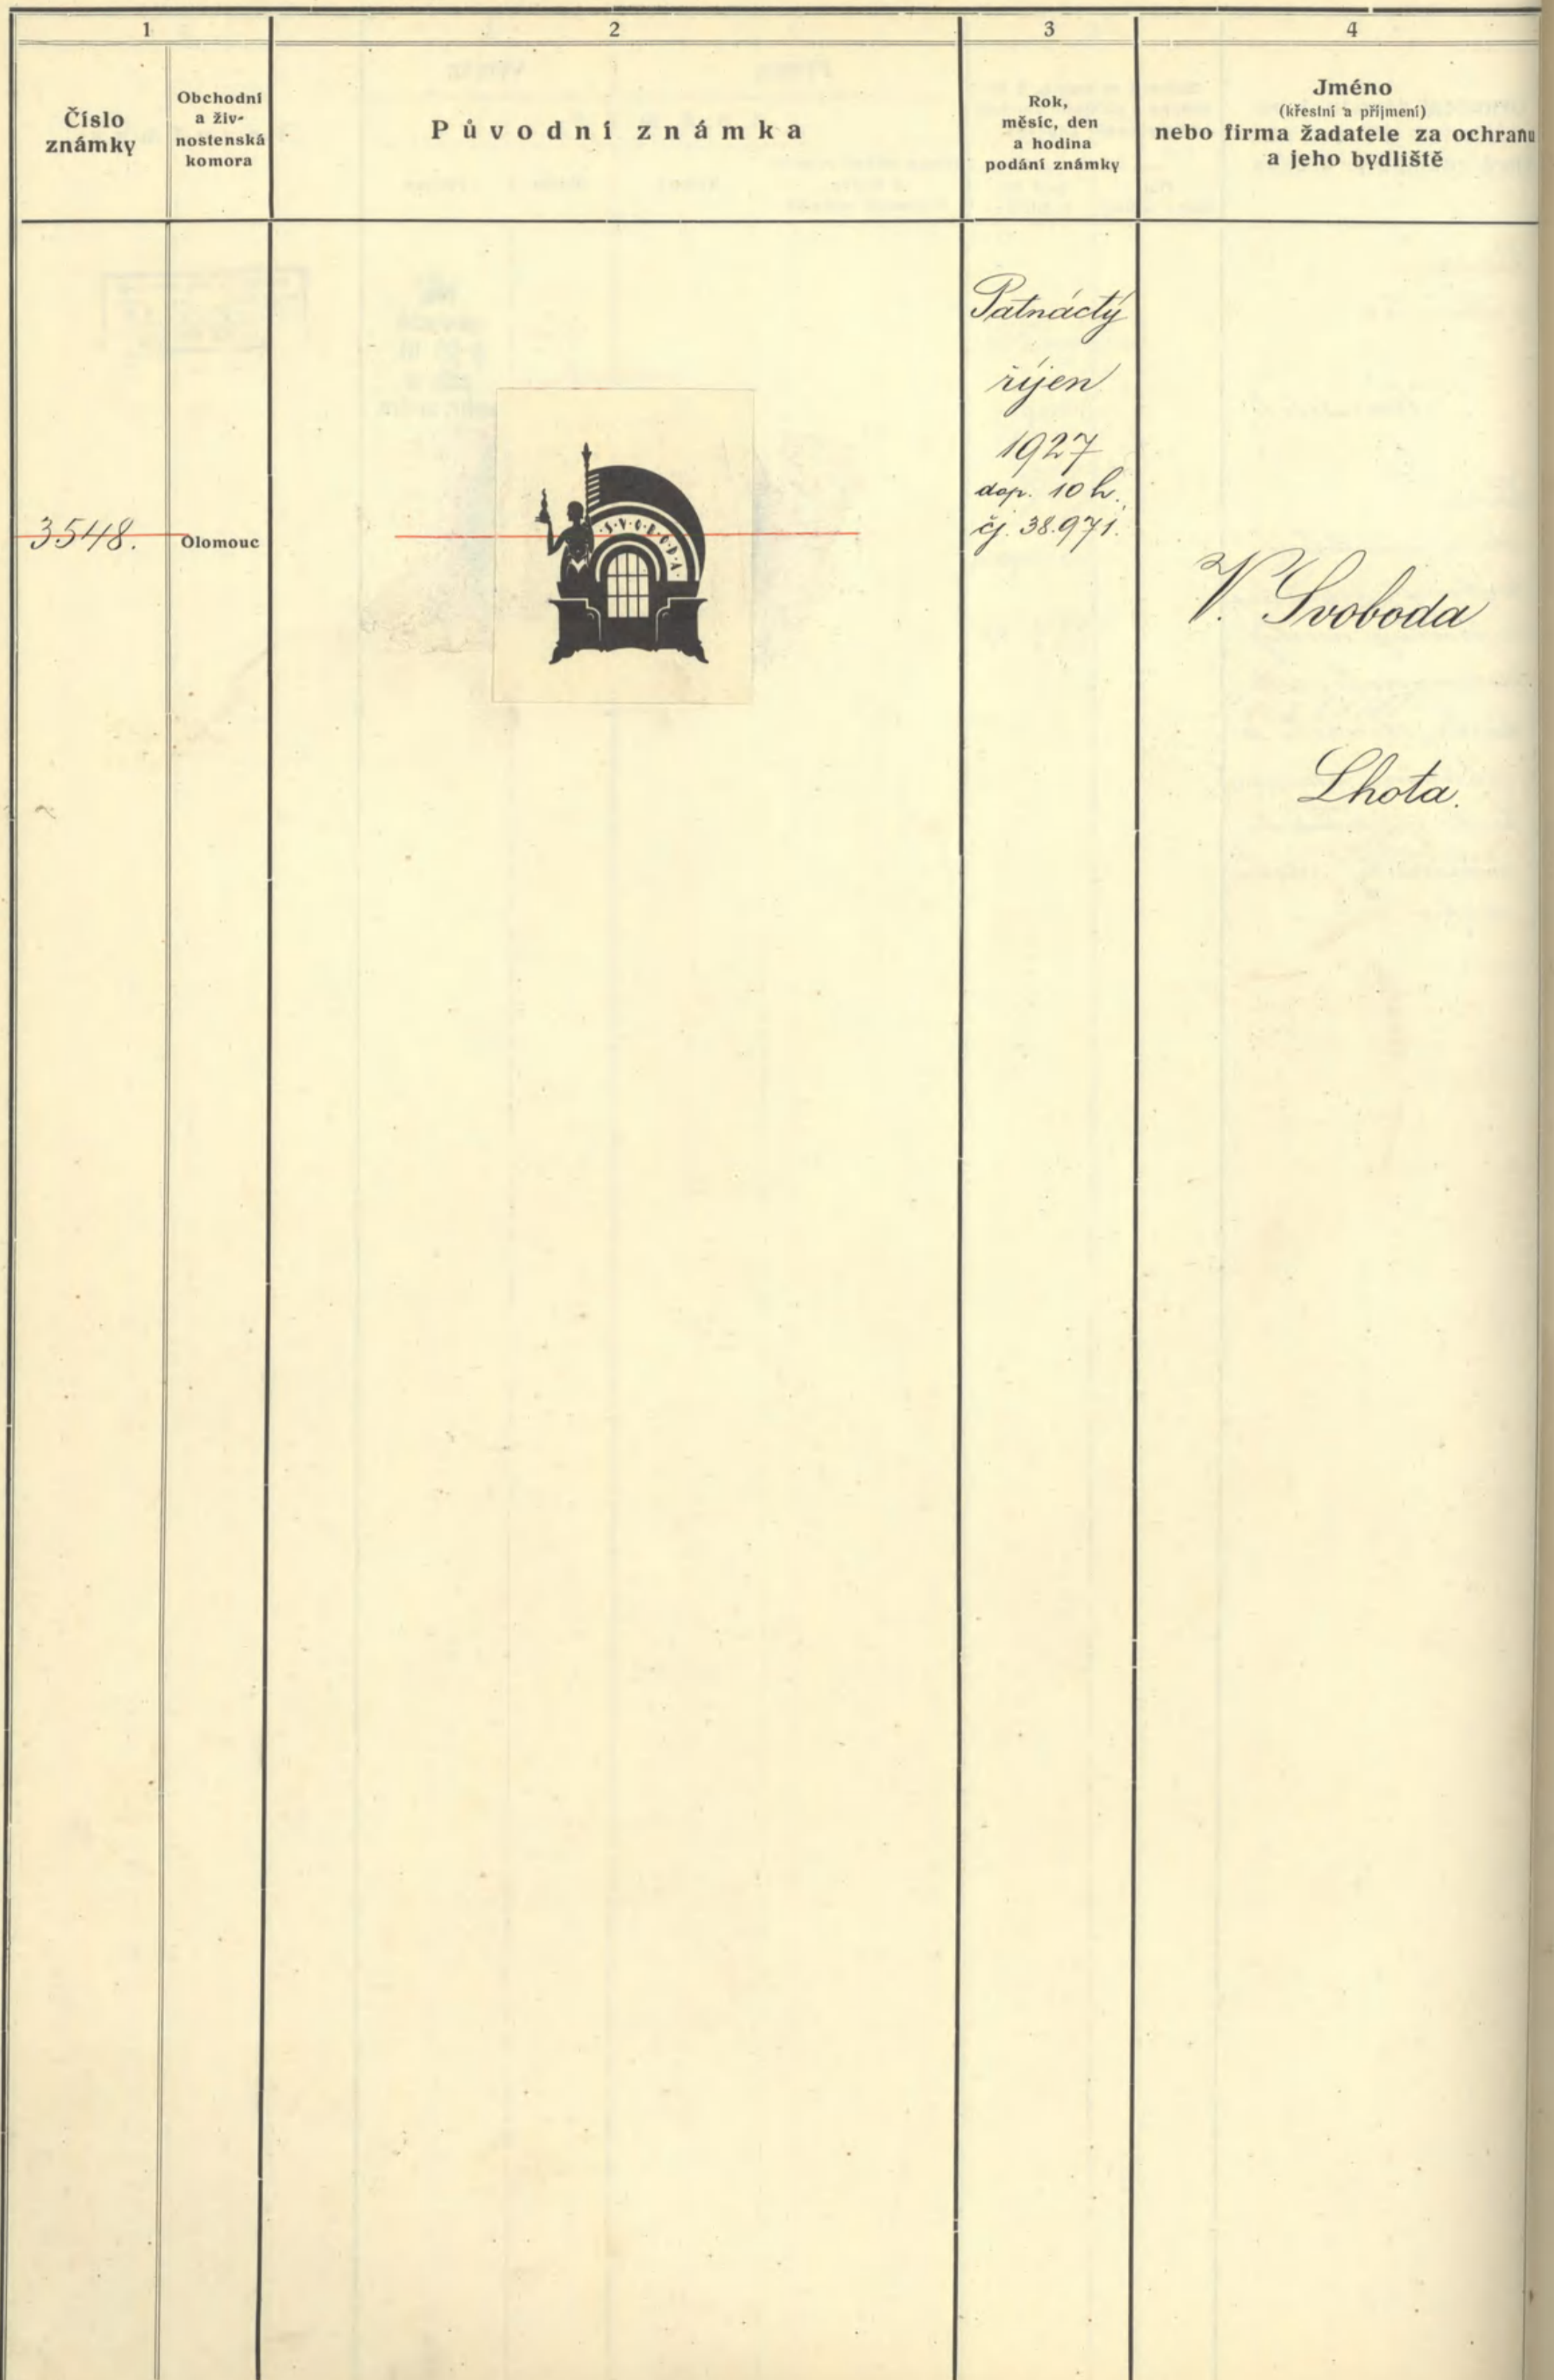 1
2
3
4
Číslo
známky
Obchodní
a živ-
nostenská
komora
Původní známka
Rok,
měsíc, den
a hodina
podání známky
Jméno
(křestní a příjmení)
nebo firma žadatele za ochranu
a jeho bydliště
3548.
Olomouc
·S·V·O·B·O·D·A·
Patnáctý
říjen
1927
dop. 10 h.,
čj. 38.971.
V. Svoboda
Lhota.